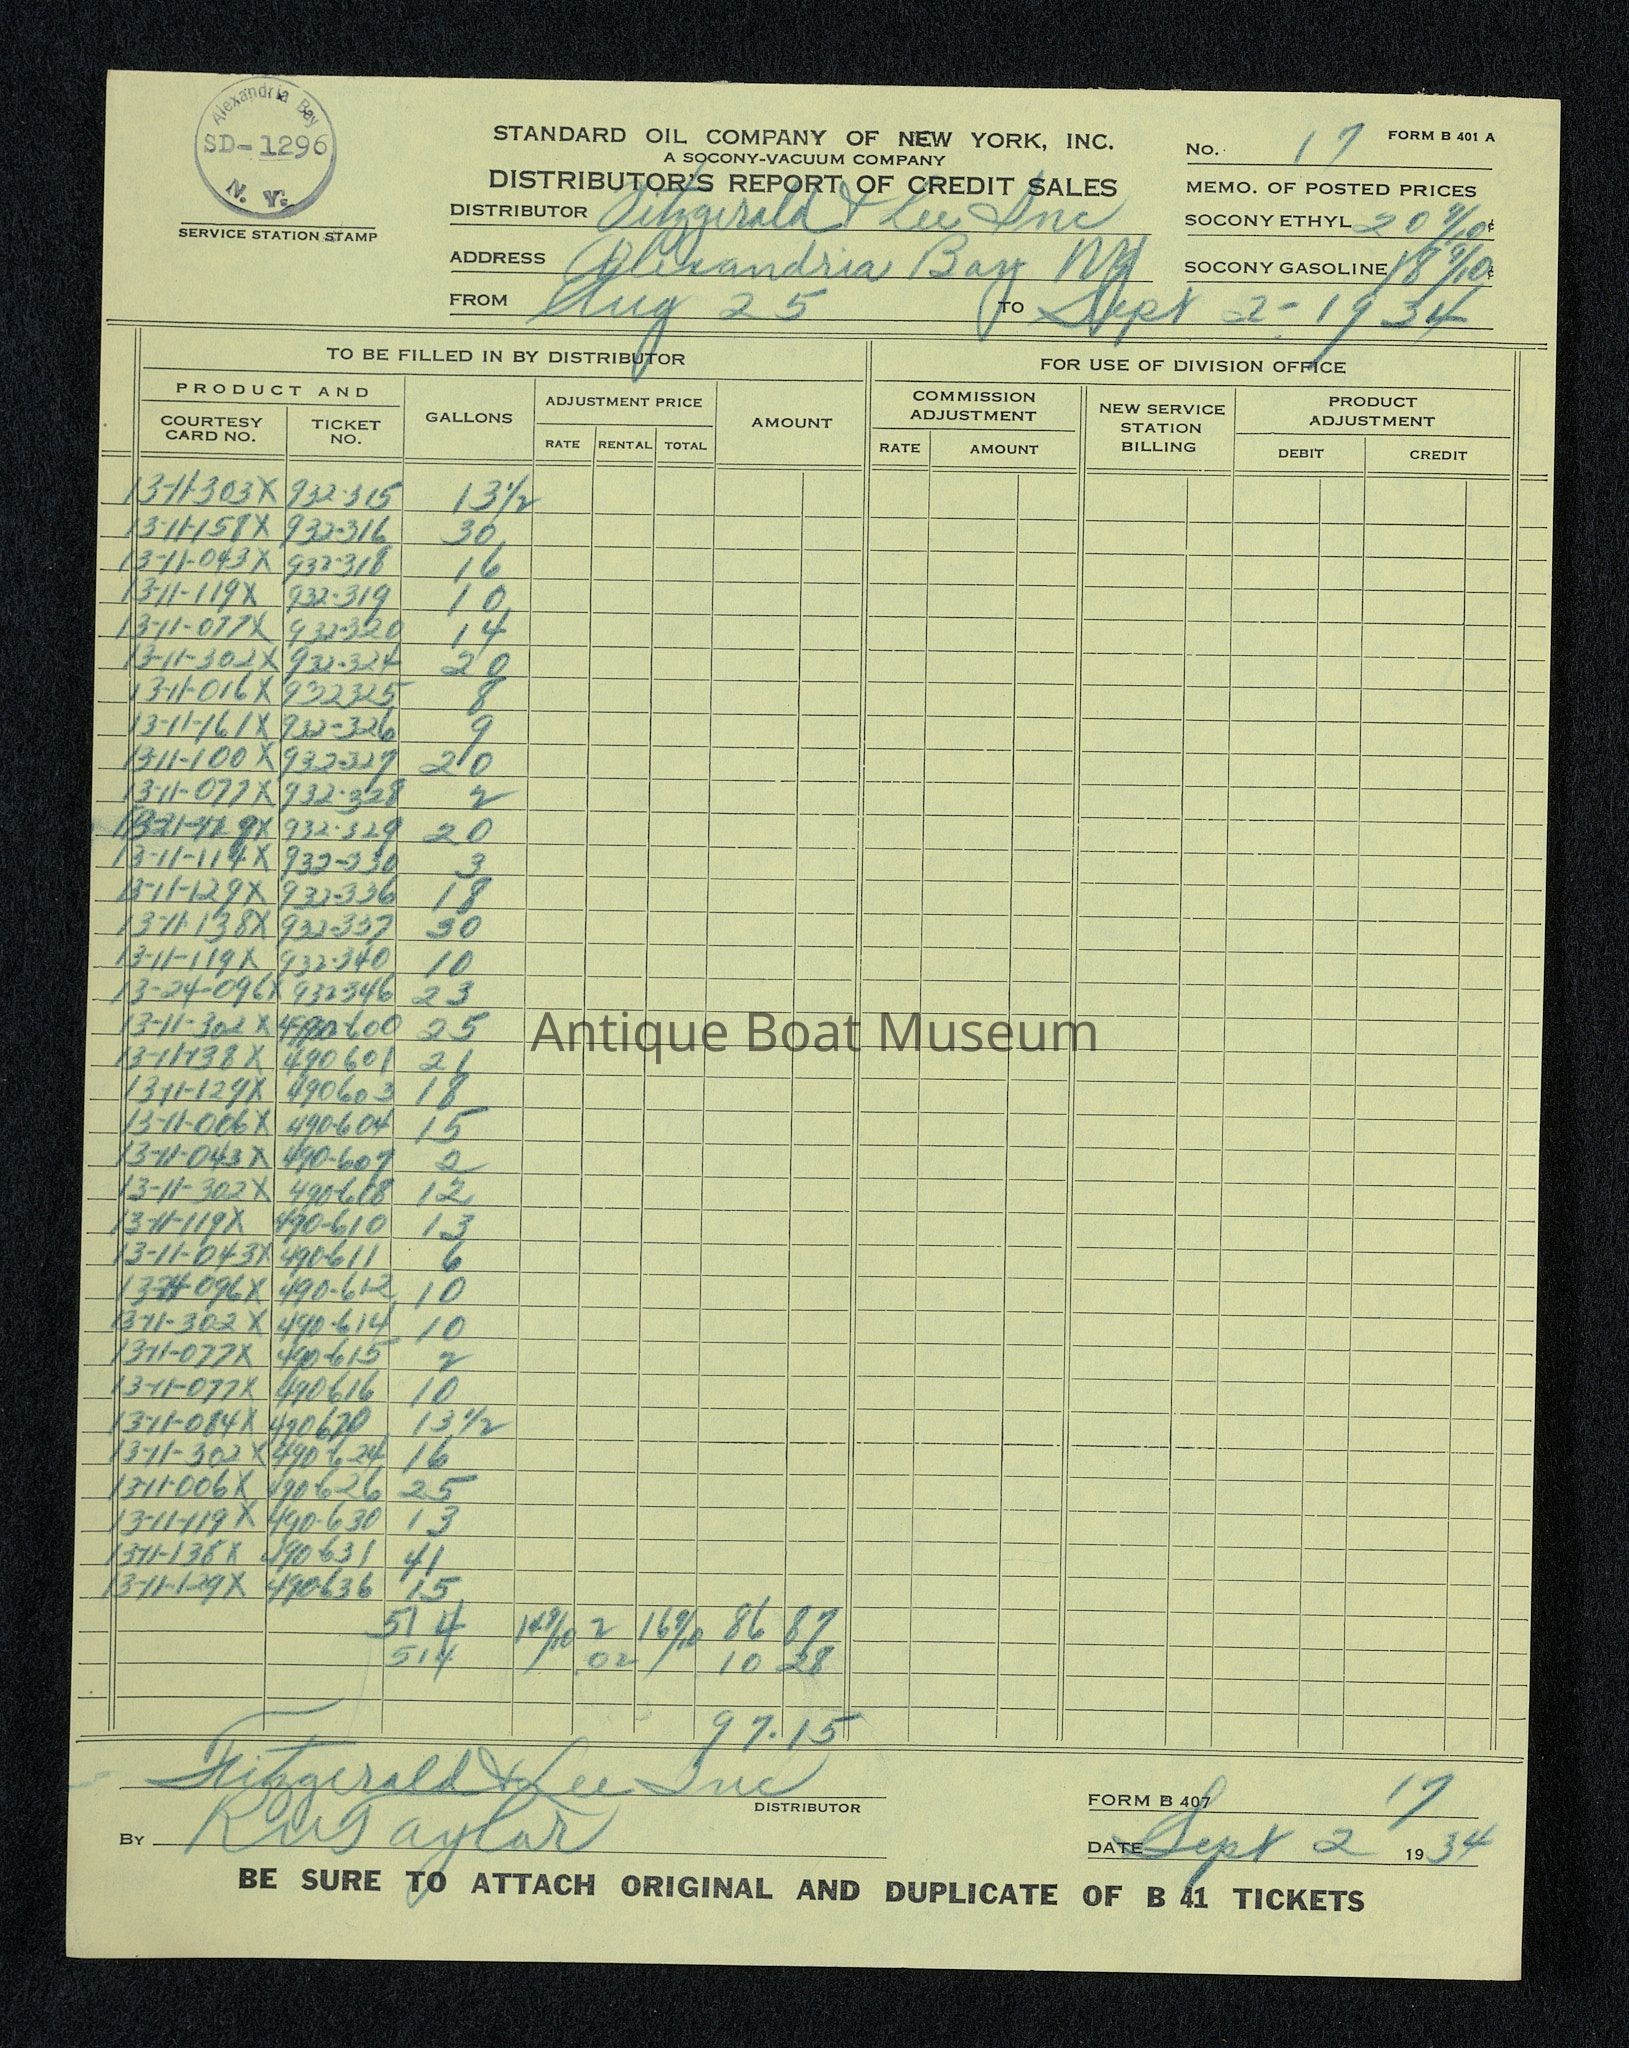 Alexandria Bay
SD-1296
N. Y.
SERVICE STATION STAMP
STANDARD OIL COMPANY OF NEW YORK, INC.
A SOCONY-VACUUM COMPANY
DISTRIBUTOR'S REPORT OF CREDIT SALES
DISTRIBUTOR Fitzgerald & Lee Inc
ADDRESS Alexandria Bay NY
FROM Aug 25 TO Sept 2-1934
FORM B 401 A
No. 17
MEMO. OF POSTED PRICES
SOCONY ETHYL 20 9/10¢
SOCONY GASOLINE 18 9/10¢
TO BE FILLED IN BY DISTRIBUTOR FOR USE OF DIVISION OFFICE
PRODUCT AND
COURTESY CARD NO. TICKET NO. GALLONS ADJUSTMENT PRICE RATE RENTAL TOTAL AMOUNT COMMISSION ADJUSTMENT RATE AMOUNT NEW SERVICE STATION BILLING PRODUCT ADJUSTMENT DEBIT CREDIT
13-11-303X 932-315 13 1/2
13-11-158X 932-316 30
13-11-043X 932-318 16
13-11-119X 932-319 10
13-11-077X 932-320 14
13-11-302X 932-324 20
13-11-016X 932325 8
13-11-161X 932-326 9
13-11-100X 932-327 20
13-11-077X 932-328 2
932-329 20
13-11-114X 932-330 3
13-11-129X 932-336 18
13-11-138X 932-337 30
13-11-119X 932-340 10
13-24-096X 932-346 23
13-11-302X 490-600 25
13-11-138X 490601 21
13-11-129X 490603 18
13-11-006X 490-604 15
13-11-043X 490-607 2
13-11-302X 12
13-11-119X 490-610 13
13-11-043X 490-611 6
490-612 10
13-11-302X 490-614 10
13-11-077X 490-615 2
13-11-077X 490616 10
13-11-084X 13 1/2
13-11-302X 490-624 16
13-11-006X 490-626 25
13-11-119X 490-630 13
13-11-138X 490-631 41
13-11-129X 490-636 15
514 14 9/10 2 16 9/10 86 87
514 02 10 28
97.15
Fitzgerald & Lee Inc
DISTRIBUTOR
By R W Taylor
FORM B 407 17
DATE Sept 2 1934
BE SURE TO ATTACH ORIGINAL AND DUPLICATE OF B 41 TICKETS
Antique Boat Museum